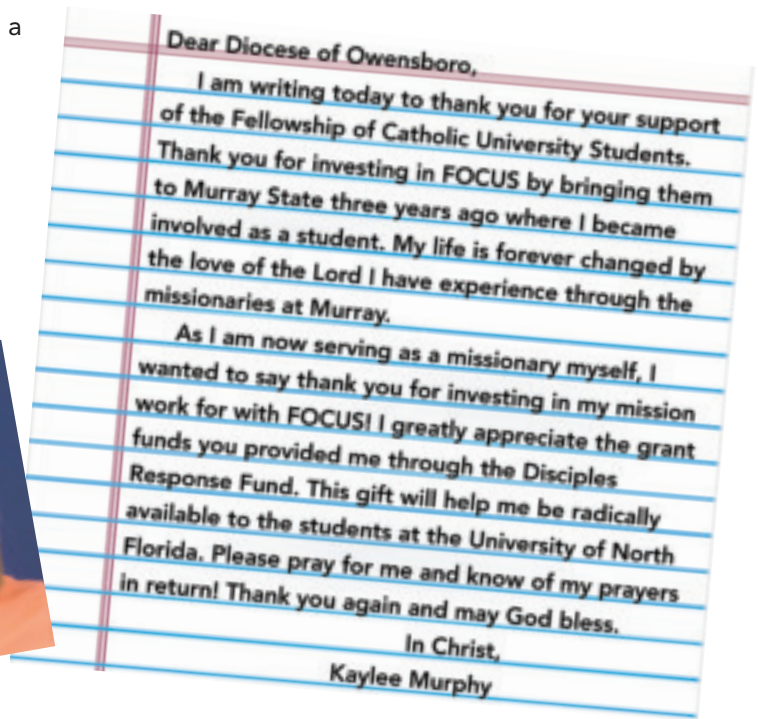 a
Dear Diocese of Owensboro,
I am writing today to thank you for your support
of the Fellowship of Catholic University Students.
Thank you for investing in FOCUS by bringing them
to Murray State three years ago where I became
involved as a student. My life is forever changed by
the love of the Lord I have experience through the
missionaries at Murray.
As I am now serving as a missionary myself, I
wanted to say thank you for investing in my mission
work for with FOCUS! I greatly appreciate the grant
funds you provided me through the Disciples
Response Fund. This gift will help me be radically
available to the students at the University of North
Florida. Please pray for me and know of my prayers
in return! Thank you again and may God bless.
In Christ,
Kaylee Murphy